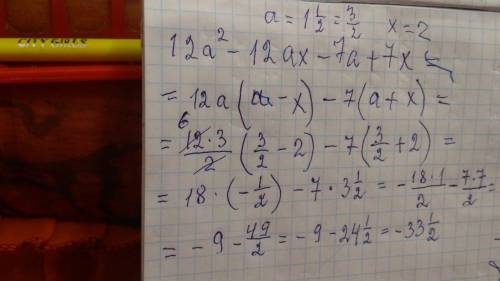 a = 1 1/2 = 3/2   x = 2
12a² - 12ax - 7a + 7x =
= 12a(a - x) - 7(a + x) =
= 6 12·3/2 (3/2 - 2) - 7(3/2 + 2) =
= 18·(-1/2) - 7·3 1/2 = - 18·1/2 - 7·7/2 =
= - 9 - 49/2 = - 9 - 24 1/2 = - 33 1/2
CITY GIRLS